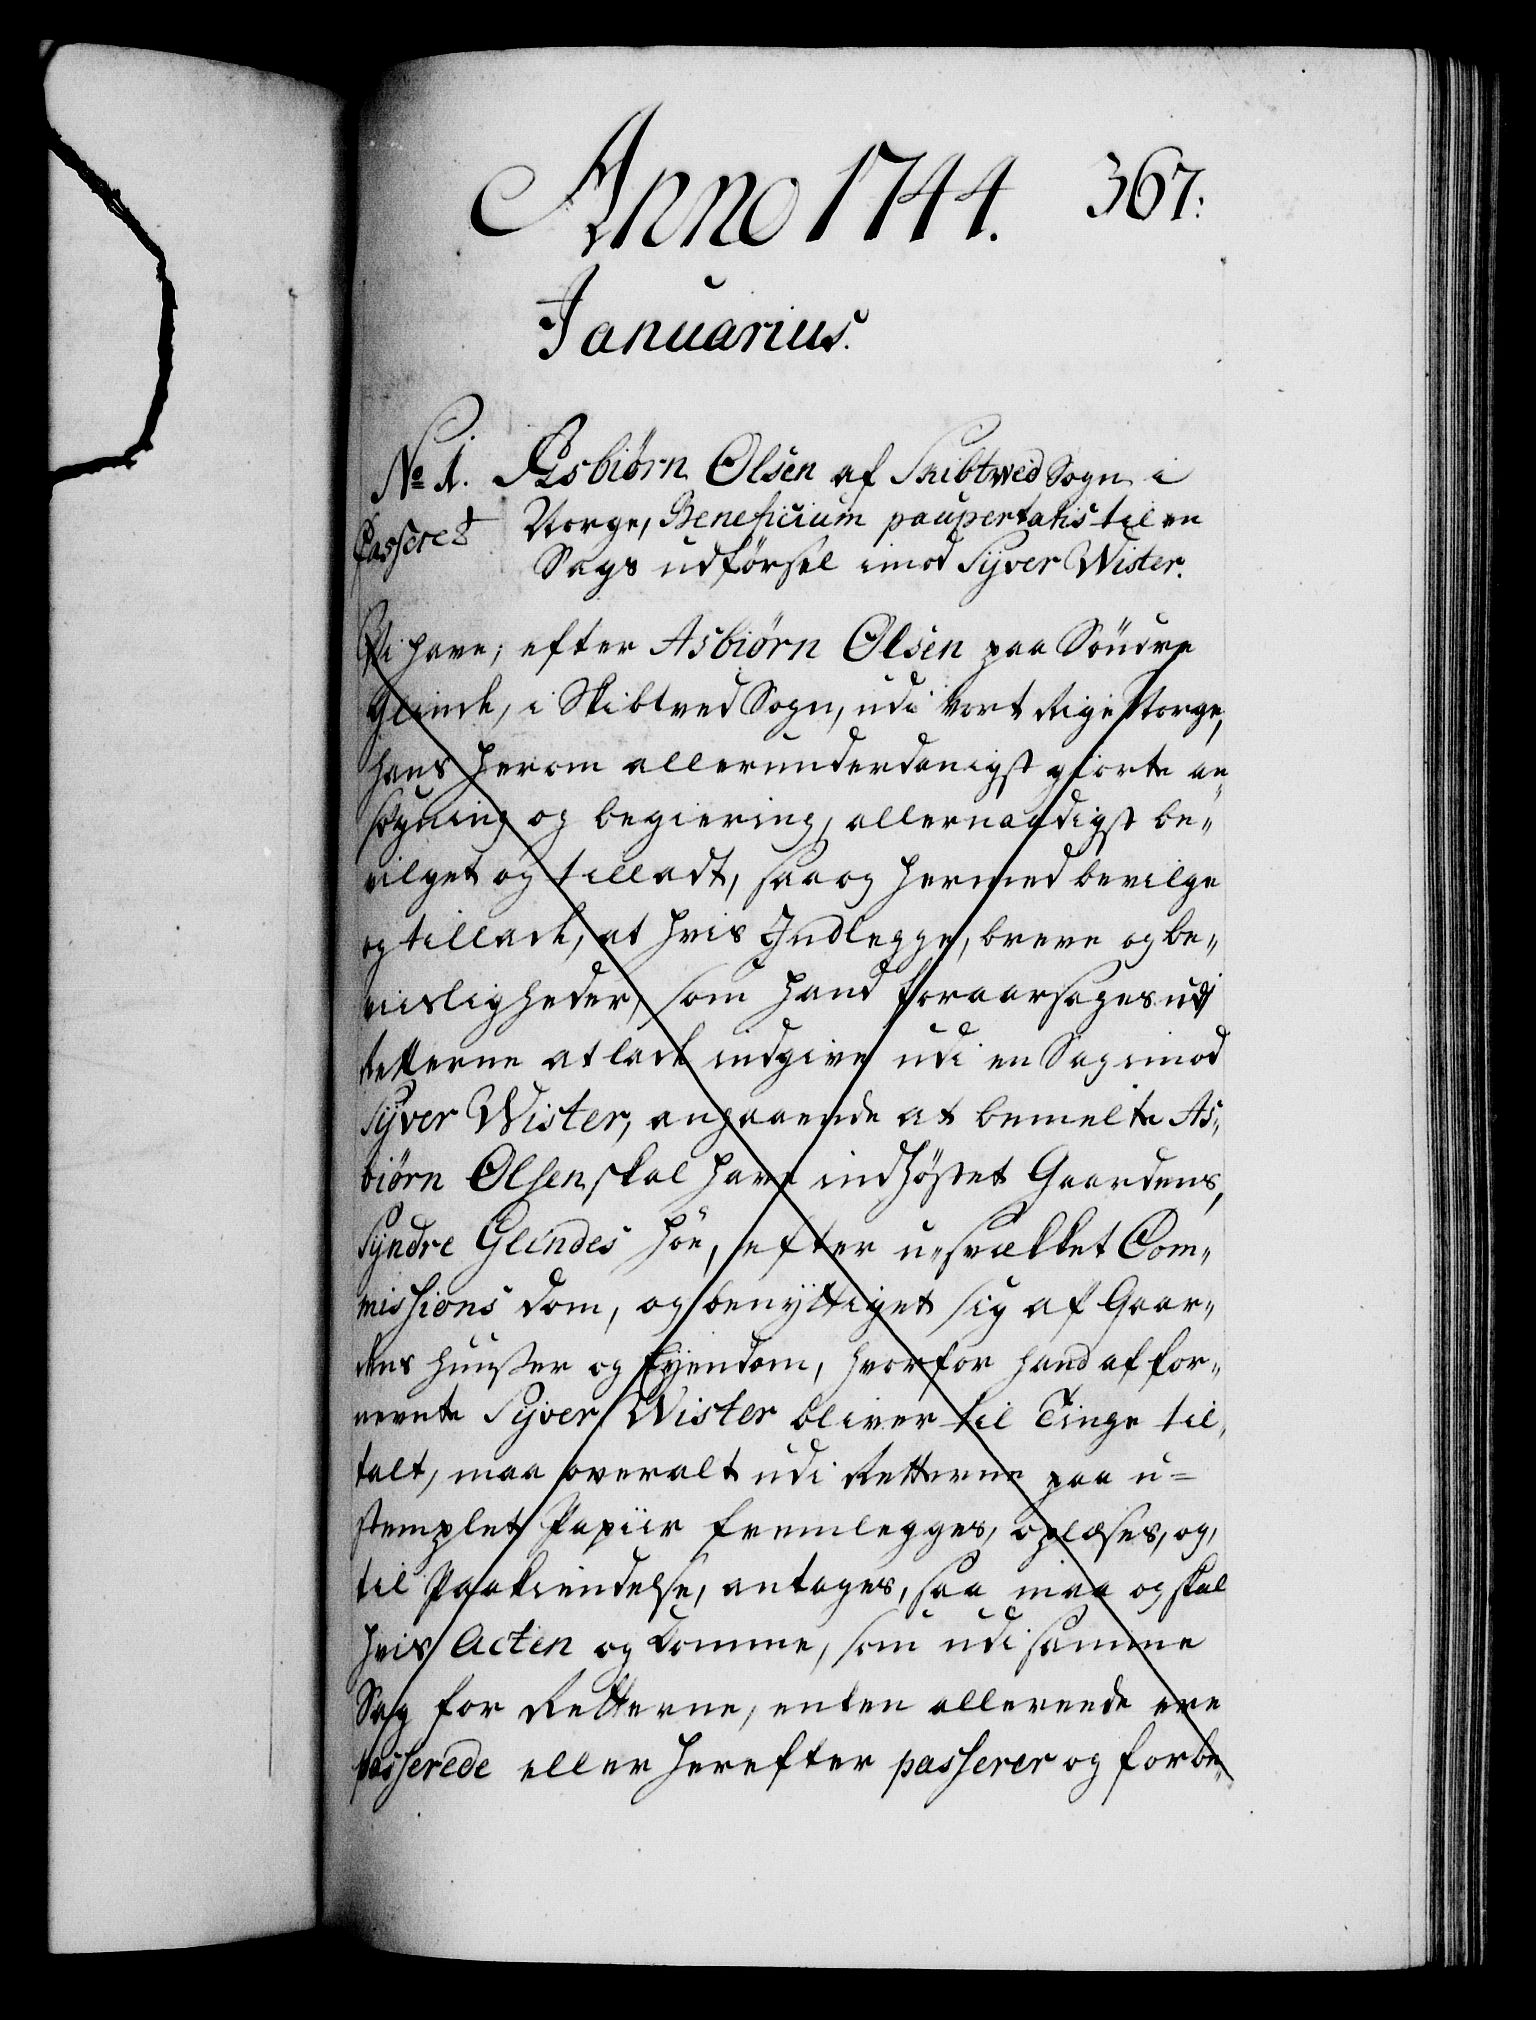 Anno 1744. 367.
Januarius.
No 1. Asbiørn Olsen af Skibtwed Sogn i
Casseret Norge, Beneficium paupertatis til en
Sags udførsel imod Syver Wister.
Vi have, efter Asbiørn Olsen paa Söndre
Glinde, i Skibtved Sogn, udi Vort Rige Norge,
hans herom allerunderdanigst giorte an„
søgning og begiering, allernaadigst be„
vilget og tilladt, saa og hermed bevilge
og tillade, at hvis Indlegge, breve og be„
viisligheder, som hand foraarsages udi
Retterne at lade indgive udi en Sag imod
Syver Wister, angaaende at bemelte As„
biørn Olsen skal have indhöstet Gaardens,
Syndre Glindes höe, efter u„svækket Com„
missions Dom, og benyttiget sig af Gaar„
dens huuser og Eyendom, hvorfor hand af for„
nevnte Syver Wister bliver til Tinge til„
talt, maa overalt udi Retterne paa u=
stemplet Papiir fremlegges, oplæses, og,
til Paakiendelse, antages, saa maa og skal
hvis Acten og Domme, som udi samme
Sag for Retterne, enten allereede ere
passerede eller herefter passerer og forbe„